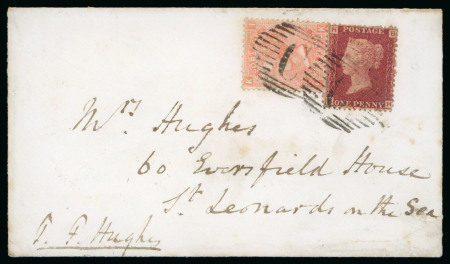 POSTAGE
ONE PENNY
Mrs Hughes
60 Eversfield House
St Leonards on the Sea
T. F. Hughes